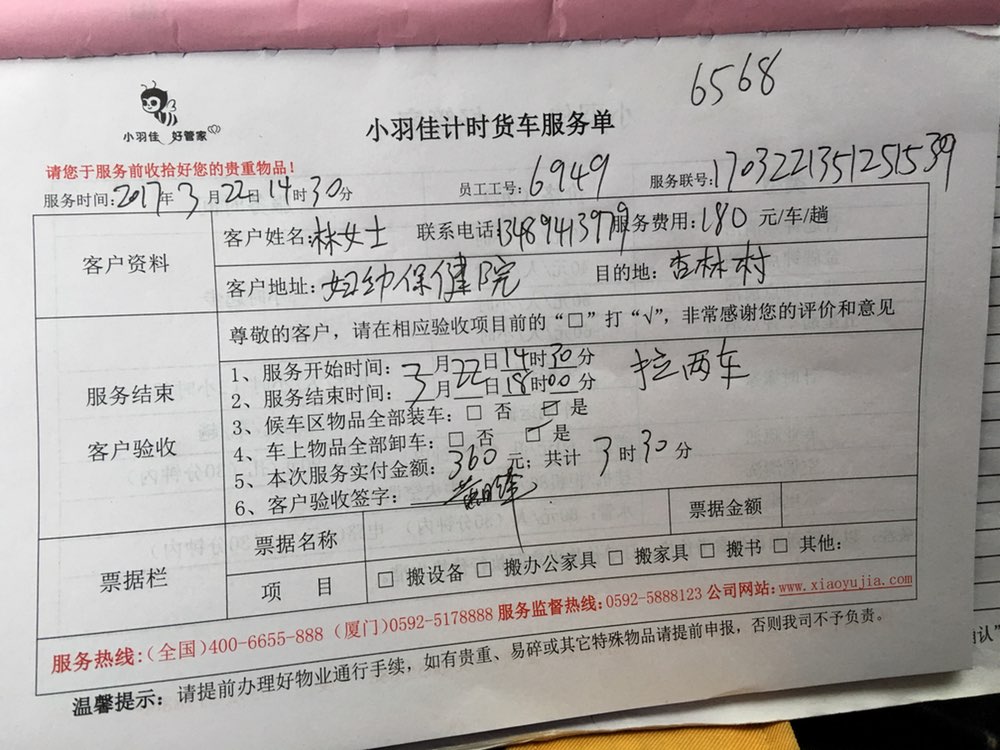 6568
小羽佳 好管家
小羽佳计时货车服务单
请您于服务前收拾好您的贵重物品！
服务时间：2017年3月22日14时30分 员工工号：6949 服务联号：1703221351251539
客户资料
客户姓名：林女士 联系电话：13489413979 服务费用：180元/车/趟
客户地址：妇幼保健院 目的地：杏林村
服务结束
客户验收
尊敬的客户，请在相应验收项目前的“□”打“√”，非常感谢您的评价和意见
1、服务开始时间：3月22日14时30分 拉两车
2、服务结束时间：3月22日18时00分
3、候车区物品全部装车：□ 否 ☑ 是
4、车上物品全部卸车：□ 否 ☑ 是
5、本次服务实付金额：360元；共计3时30分
6、客户验收签字：
票据栏
票据名称 票据金额
项 目 □ 搬设备 □ 搬办公家具 □ 搬家具 □ 搬书 □ 其他：
服务热线：（全国）400-6655-888 （厦门）0592-5178888 服务监督热线：0592-5888123 公司网站：www.xiaoyujia.com
温馨提示：请提前办理好物业通行手续，如有贵重、易碎或其它特殊物品请提前申报，否则我司不予负责。